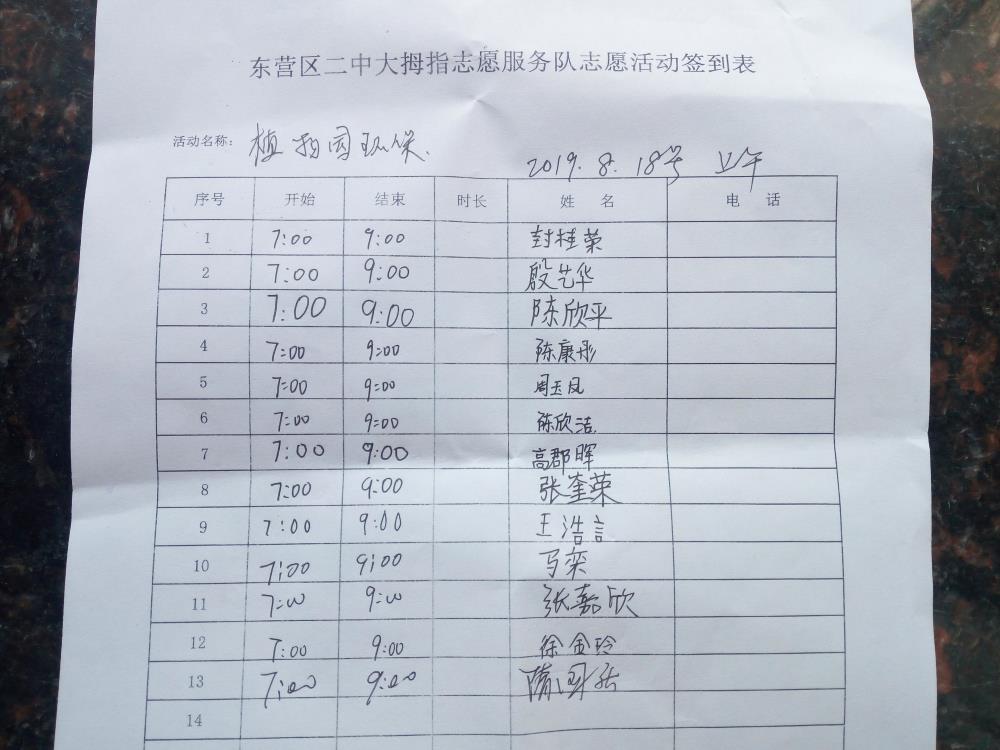 东营区二中大拇指志愿服务队志愿活动签到表
活动名称: 植物园环保.
2019.8.18号 上午
序号 开始 结束 时长 姓名 电话
1 7:00 9:00 封桂荣
2 7:00 9:00 殷艺华
3 7:00 9:00 陈欣平
4 7:00 9:00 陈康彤
5 7:00 9:00 周玉凤
6 7:00 9:00 陈欣洁
7 7:00 9:00 高郡晖
8 7:00 9:00 张奎荣
9 7:00 9:00 王浩言
10 7:00 9:00 马奕
11 7:00 9:00 张嘉欣
12 7:00 9:00 徐金玲
13 7:00 9:00 隋国
14